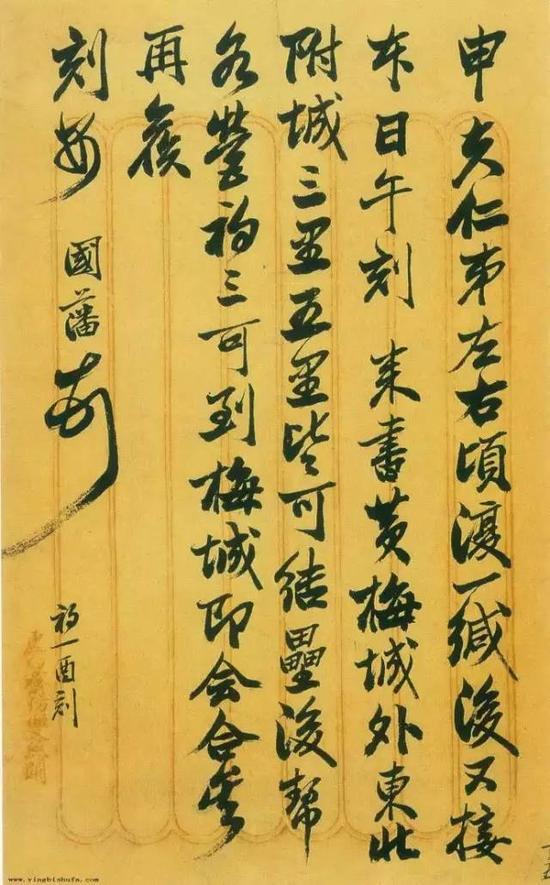 申夫仁弟左右頃復一緘後又接
本日午刻 来書黃梅城外東北
附城三里五里皆可結壘後幫
各營初三可到梅城即会合矣
再復
刻安 國藩頓
初一酉刻
www.yingbishufa.com